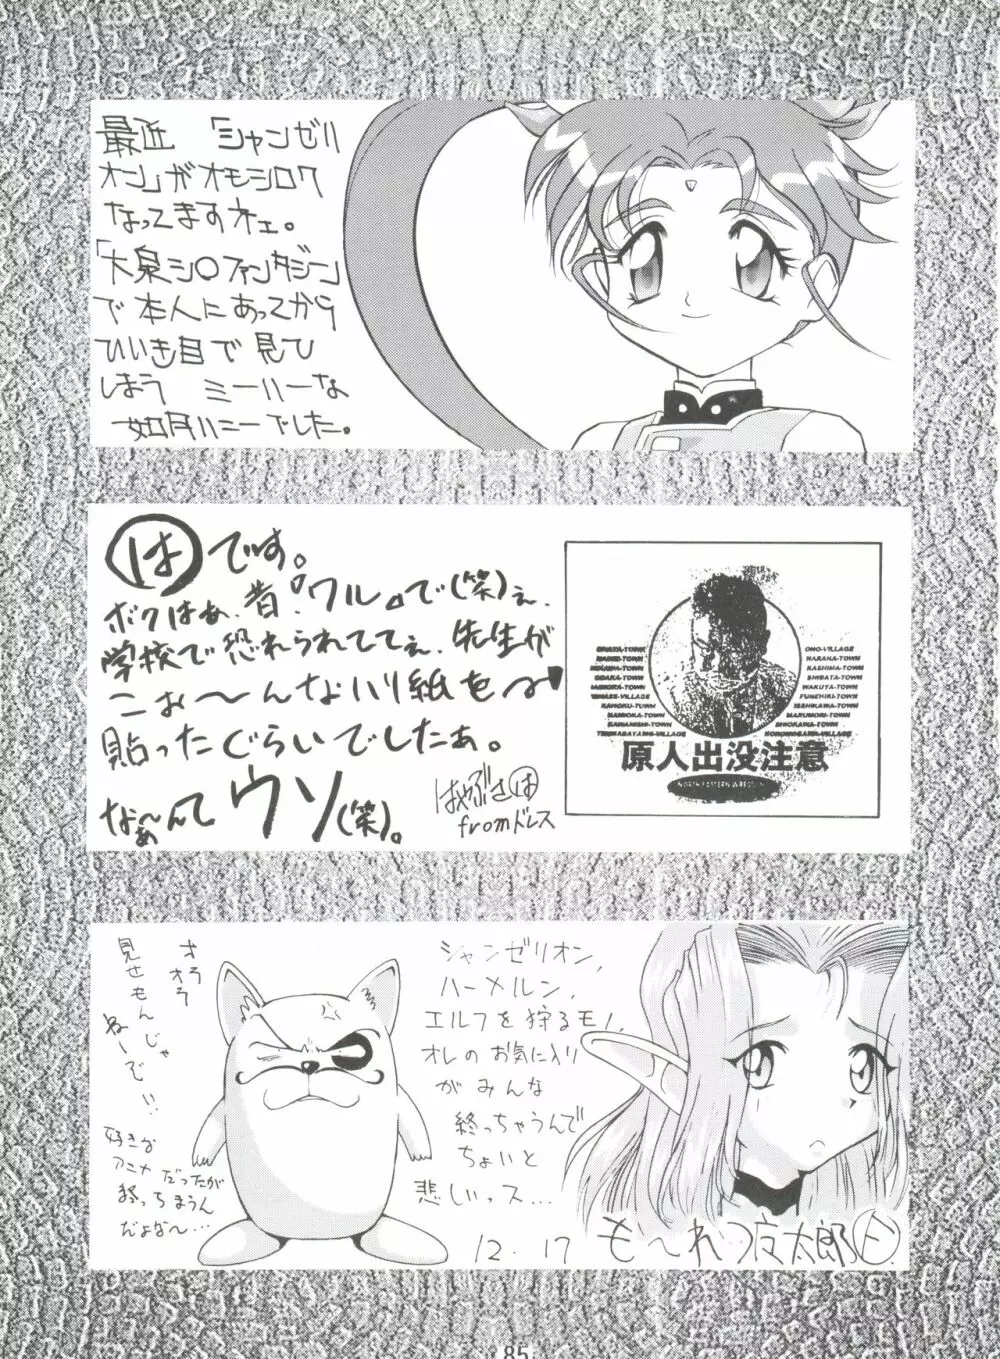 最近 「シャンゼリ
オン」がオモシロク
なってますネェ。
「大泉シ○ファンタジー」
で本人にあってから
ひいき目で見ひ
しまう ミーハーな
如月ハニーでした。
はです。
ボクはぁ、昔『ワル』で(笑)ぇ、
学校で恐れられててぇ、先生が
こぉ〜んなハリ紙を
貼ったぐらいでしたぁ。
なぁ〜んてウソ(笑)。
はやぶさは
fromドレス
ONO-VILLAGE
NARAHA-TOWN
KASHIMA-TOWN
SHIBATA-TOWN
WAKUYA-TOWN
FUNEHIKI-TOWN
ISSHIKAWA-TOWN
MARUMORI-TOWN
原人出没注意
オラオラ
見せもんじゃ
ねーでい!!
好きな
アニメだったが
終っちまうん
だよな〜…
シャンゼリオン,
ハーメルン,
エルフを狩るモノ,
オレのお気に入り
がみんな
終っちゃうんで
ちょいと
悲しいっス…
12.17
も〜れつ夜太郎
85